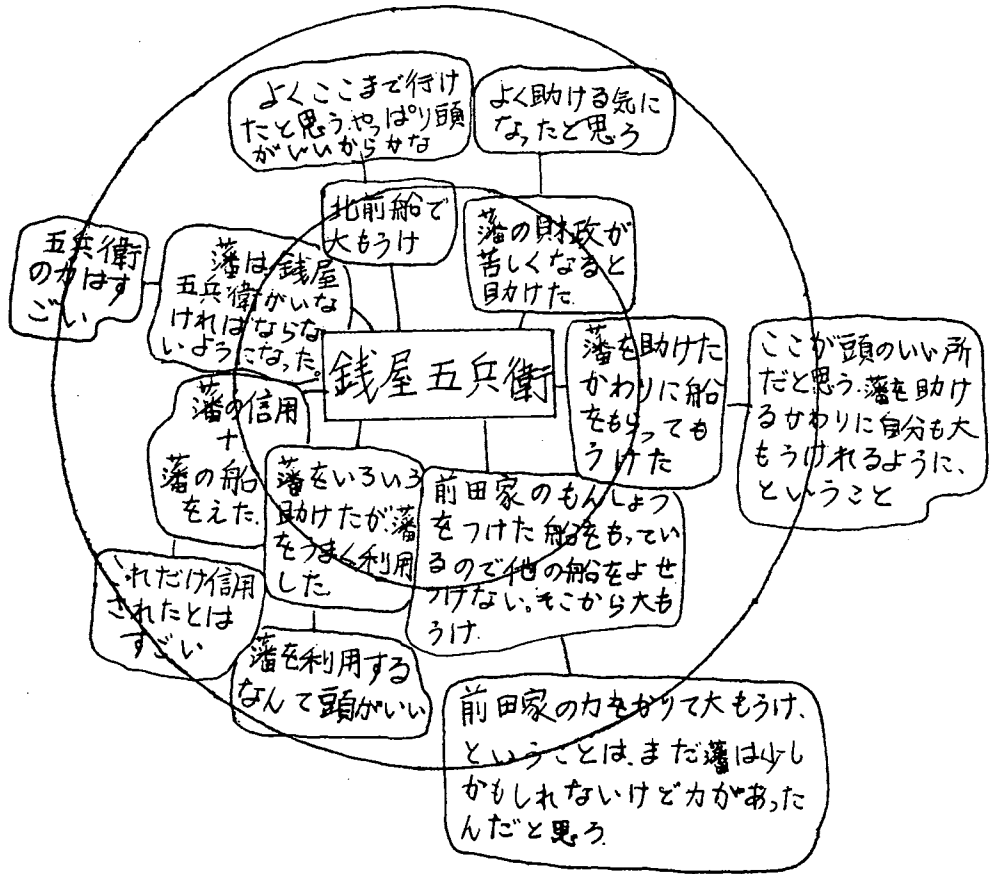 よくここまで行け
たと思う.やっぱり頭
がいいからかな
よく助ける気に
なったと思う
北前船で
大もうけ
藩の財政が
苦しくなると
助けた.
五兵衛
の力はす
ごい
藩は,銭屋
五兵衛がいな
ければならな
いようになった。
銭屋五兵衛
藩を助けた
かわりに船
をもらっても
うけた
ここが頭のいい所
だと思う.藩を助け
るかわりに自分も大
もうけれるように、
ということ
藩の信用
+
藩の船
をえた.
藩をいろいろ
助けたが藩
をうまく利用
した.
前田家のもんしょう
をつけた船をもってい
るので他の船をよせ
つけない。そこから大も
うけ.
これだけ信用
されたとは
すごい
藩を利用する
なんて頭がいい
前田家の力をかりて大もうけ、
ということは、まだ藩は少し
かもしれないけど力があった
んだと思う.